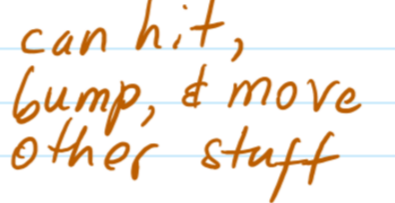 can hit,
bump, & move
other stuff